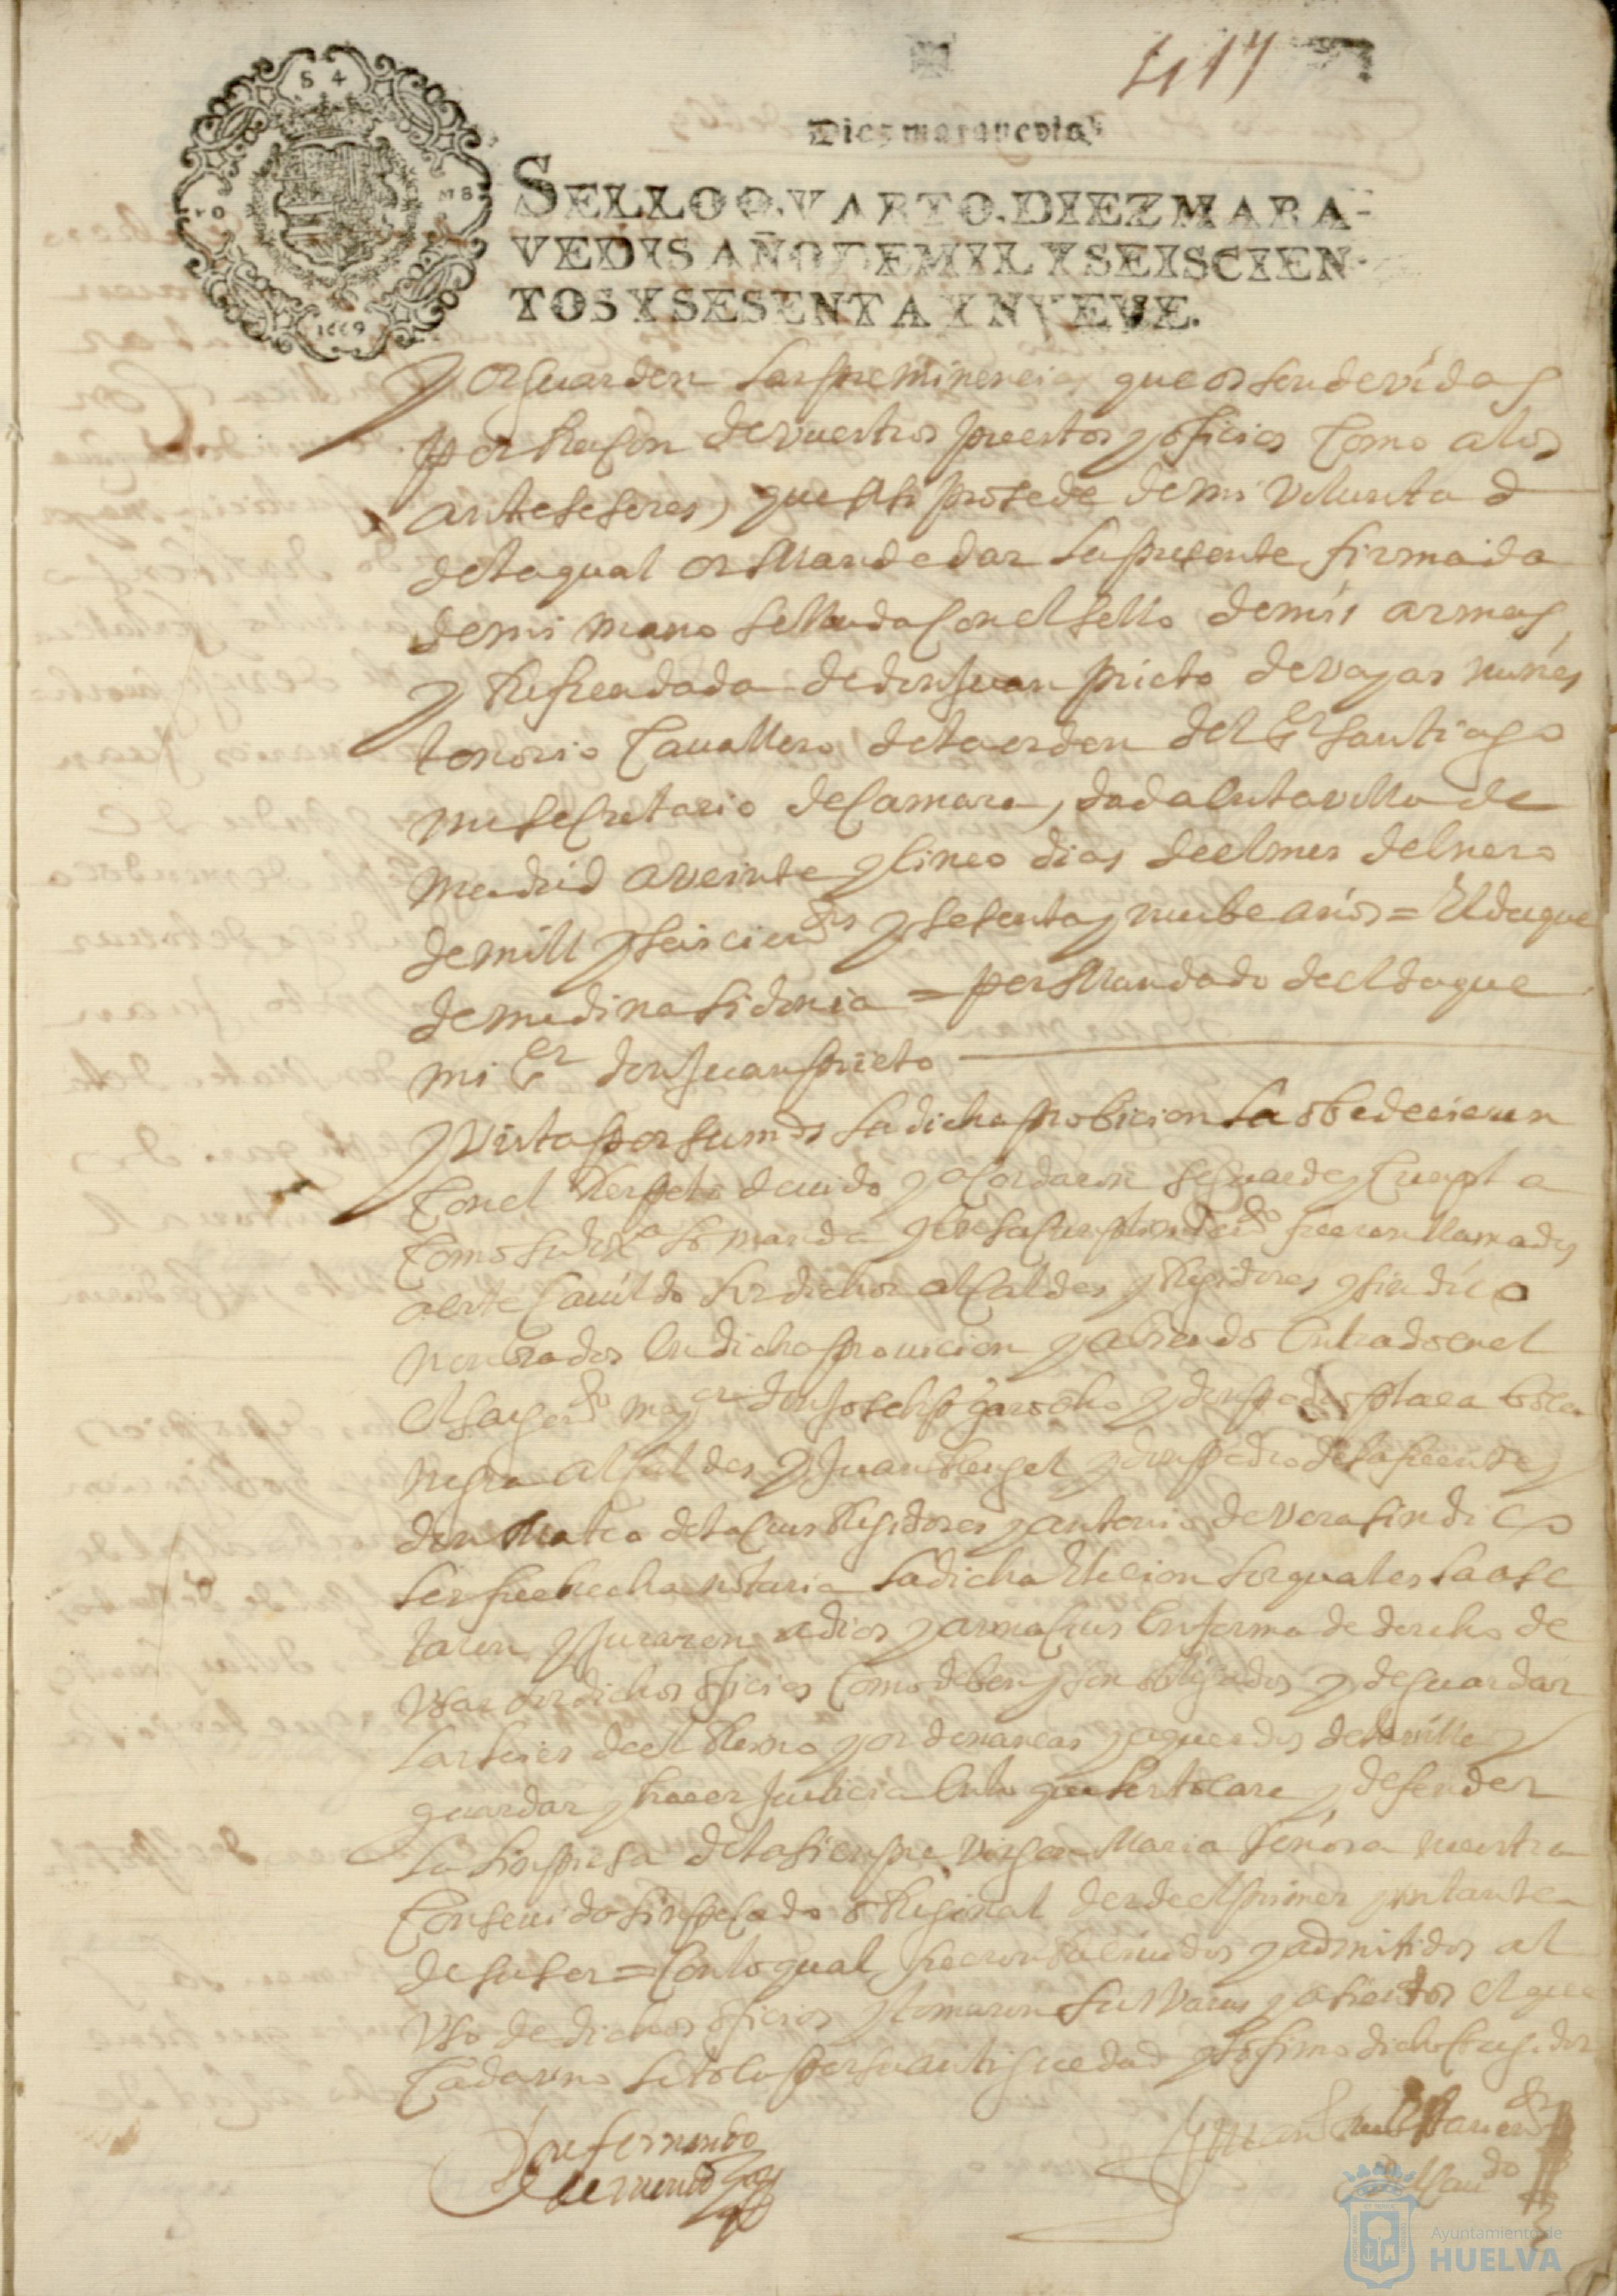 417
Diez maravedis
SELLO QVARTO, DIEZ MARA-
VEDIS AÑO DE MIL Y SEISCIEN-
TOS Y SESENTA Y NVEVE.
S 4
1669
y os guarden las preminencias que os sen devidas
por Raçon de vuestros puestos y oficios Como a los
antesesores, que asi prosede de mi voluntad
de la qual os Mande dar la presente firmada
de mi mano sellada Con el sello de mis armas
y Refrendada de don Juan prieto de vayas nuñes
tenorio Cavallero de la orden del Sr Santiago
mi seCretario de Camara, dada en la villa de
Madrid a veinte y Cinco dias de el mes de Enero
de mill y seiscientos y sesenta y nuebe años = El duque
de medina sidonia = por Mandado de el duque
mi Sr don Juan prieto
y Vista por sus mds la dicha probicion la obedecieron
Con el Respeto devido y aCordaron se guarde y Cumpla
Como su Exa lo manda y fueron llamados
a este Cavildo los dichos alCaldes y Regidores y sindico
nonbrados en dicha provicion y abiendo entrado en el
don Joseph garrocho y don pedro plaça
negra alCaldes y Juan Rengel y don pedro de la fuente y
don Mateo de la Cruz Regidores y antonio de vera sindico
les fue hecha notoria la dicha Elecion los quales la ase
taron y juraron a dios y a una Cruz en forma de derecho de
usar los dichos oficios Como deben y son obligados y de guardar
las leies de el Reino y ordenanças y aquerdos de la villa y
guardar y hacer justicia en lo que les tocare y defender
la linpiesa de la sienpre Virgen Maria Señora nuestra
Consevida sin peCado oRiginal desde el primer yntante
de su ser = Con lo qual fueron Recividos y admitidos al
Uso de dichos oficios y tomaron sus Varas y asientos el que
Cada uno le toCa por su antiguedad y lo firmo dicho Corregidor
Don fernando
Juan
Ayuntamiento de
HUELVA